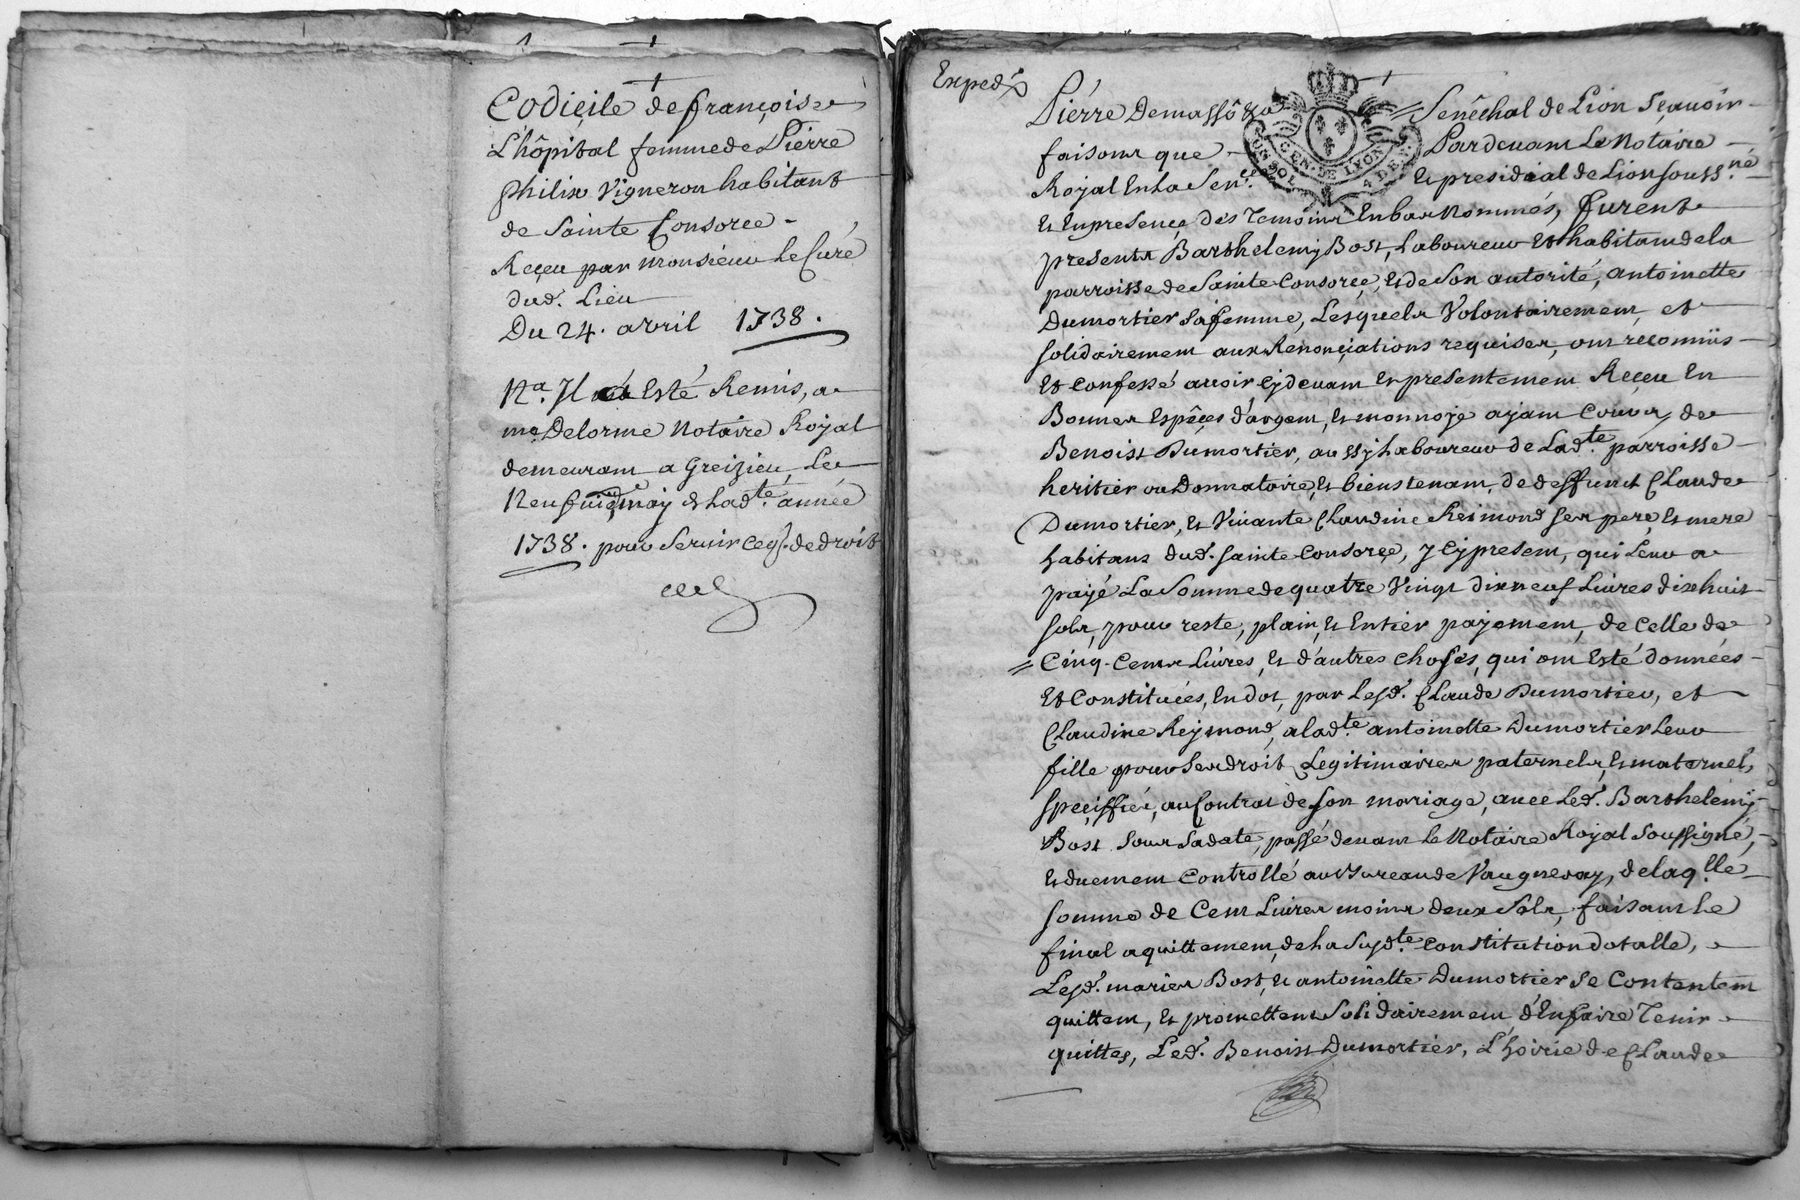 Codicile de françoise
L'hôpital femme de Pierre
philix Vigneron habitant
de Sainte Consorce -
Reçeu par monsieur le Curé
dud. Lieu
Du 24. avril 1738.
Na. Il a Esté Remis, a
me. Delorme Notaire Royal
demeurant a Greizieu, Le
Neufvie may de Lad.te année
1738. pour Servir ce q. de droit
Exped.
Pierre Demassô
Senêchal de Lion Sçavoir
faisons que -
Pardevant Le Notaire
GEN. DE LYON
4 DEN.
Royal En La Sen.ce
Et presidial de Lion souss.né
Et En presençe des Temoins En bas Nommés, furent
presents Barthelemy Bost, Laboureur Et habitant de la
parroisse de Sainte Consorçe, Et de Son autorité, antoinette
Dumortier Sa femme, Lesquels Volontairement, et
solidairement aux Renonçiations requises, ont reconniis
Et Confessé avoir Cydevant Et presentement Reçeu En
Bonnes Espêçes d'argent, Et monnoye ayant Cours, de
Benoist Dumortier, aussy Laboureur de Lad.te parroisse
heritier ou Donnatoire, Et bienstenant, de deffunct Claude
Dumortier, Et Vivante Claudine Reimond ses pere, Et mere
habitans dud. Sainte Consorçe, y Cy present, qui Leur a
payé La Somme de quatre Vingt dix neuf Livres dixhuit
sols, pour reste, plain, Et Entier payement, de Celle de
Cinq Cents Livres, Et d'autres choses, qui ont Esté données
Et Constituées, En dot, par Lesd. Claude Dumortier, et
Claudine Reymond, a lad.te antoinette Dumortier Leur
fille pour Ses droit Legitimaires paternels, Et maternels,
speçiffiés, au Contrat de Son mariage, avec Led. Barthelemy
Bost sous Sa date, passé devant Le Notaire Royal Soussigné,
Et duement Controllé au Bureau de Vaugneray, de laq.lle
somme de Cent Livres moins deux Sols, faisant Le
final aquittement, de La Susd.te Constitution dotalle,
Lesd. mariés Bost, Et antoinette Dumortier Se Contentent
quittent, Et promettent Solidairement, d'En faire Tenir
quittes, Led. Benoist Dumortier, L'hoirie de Claude